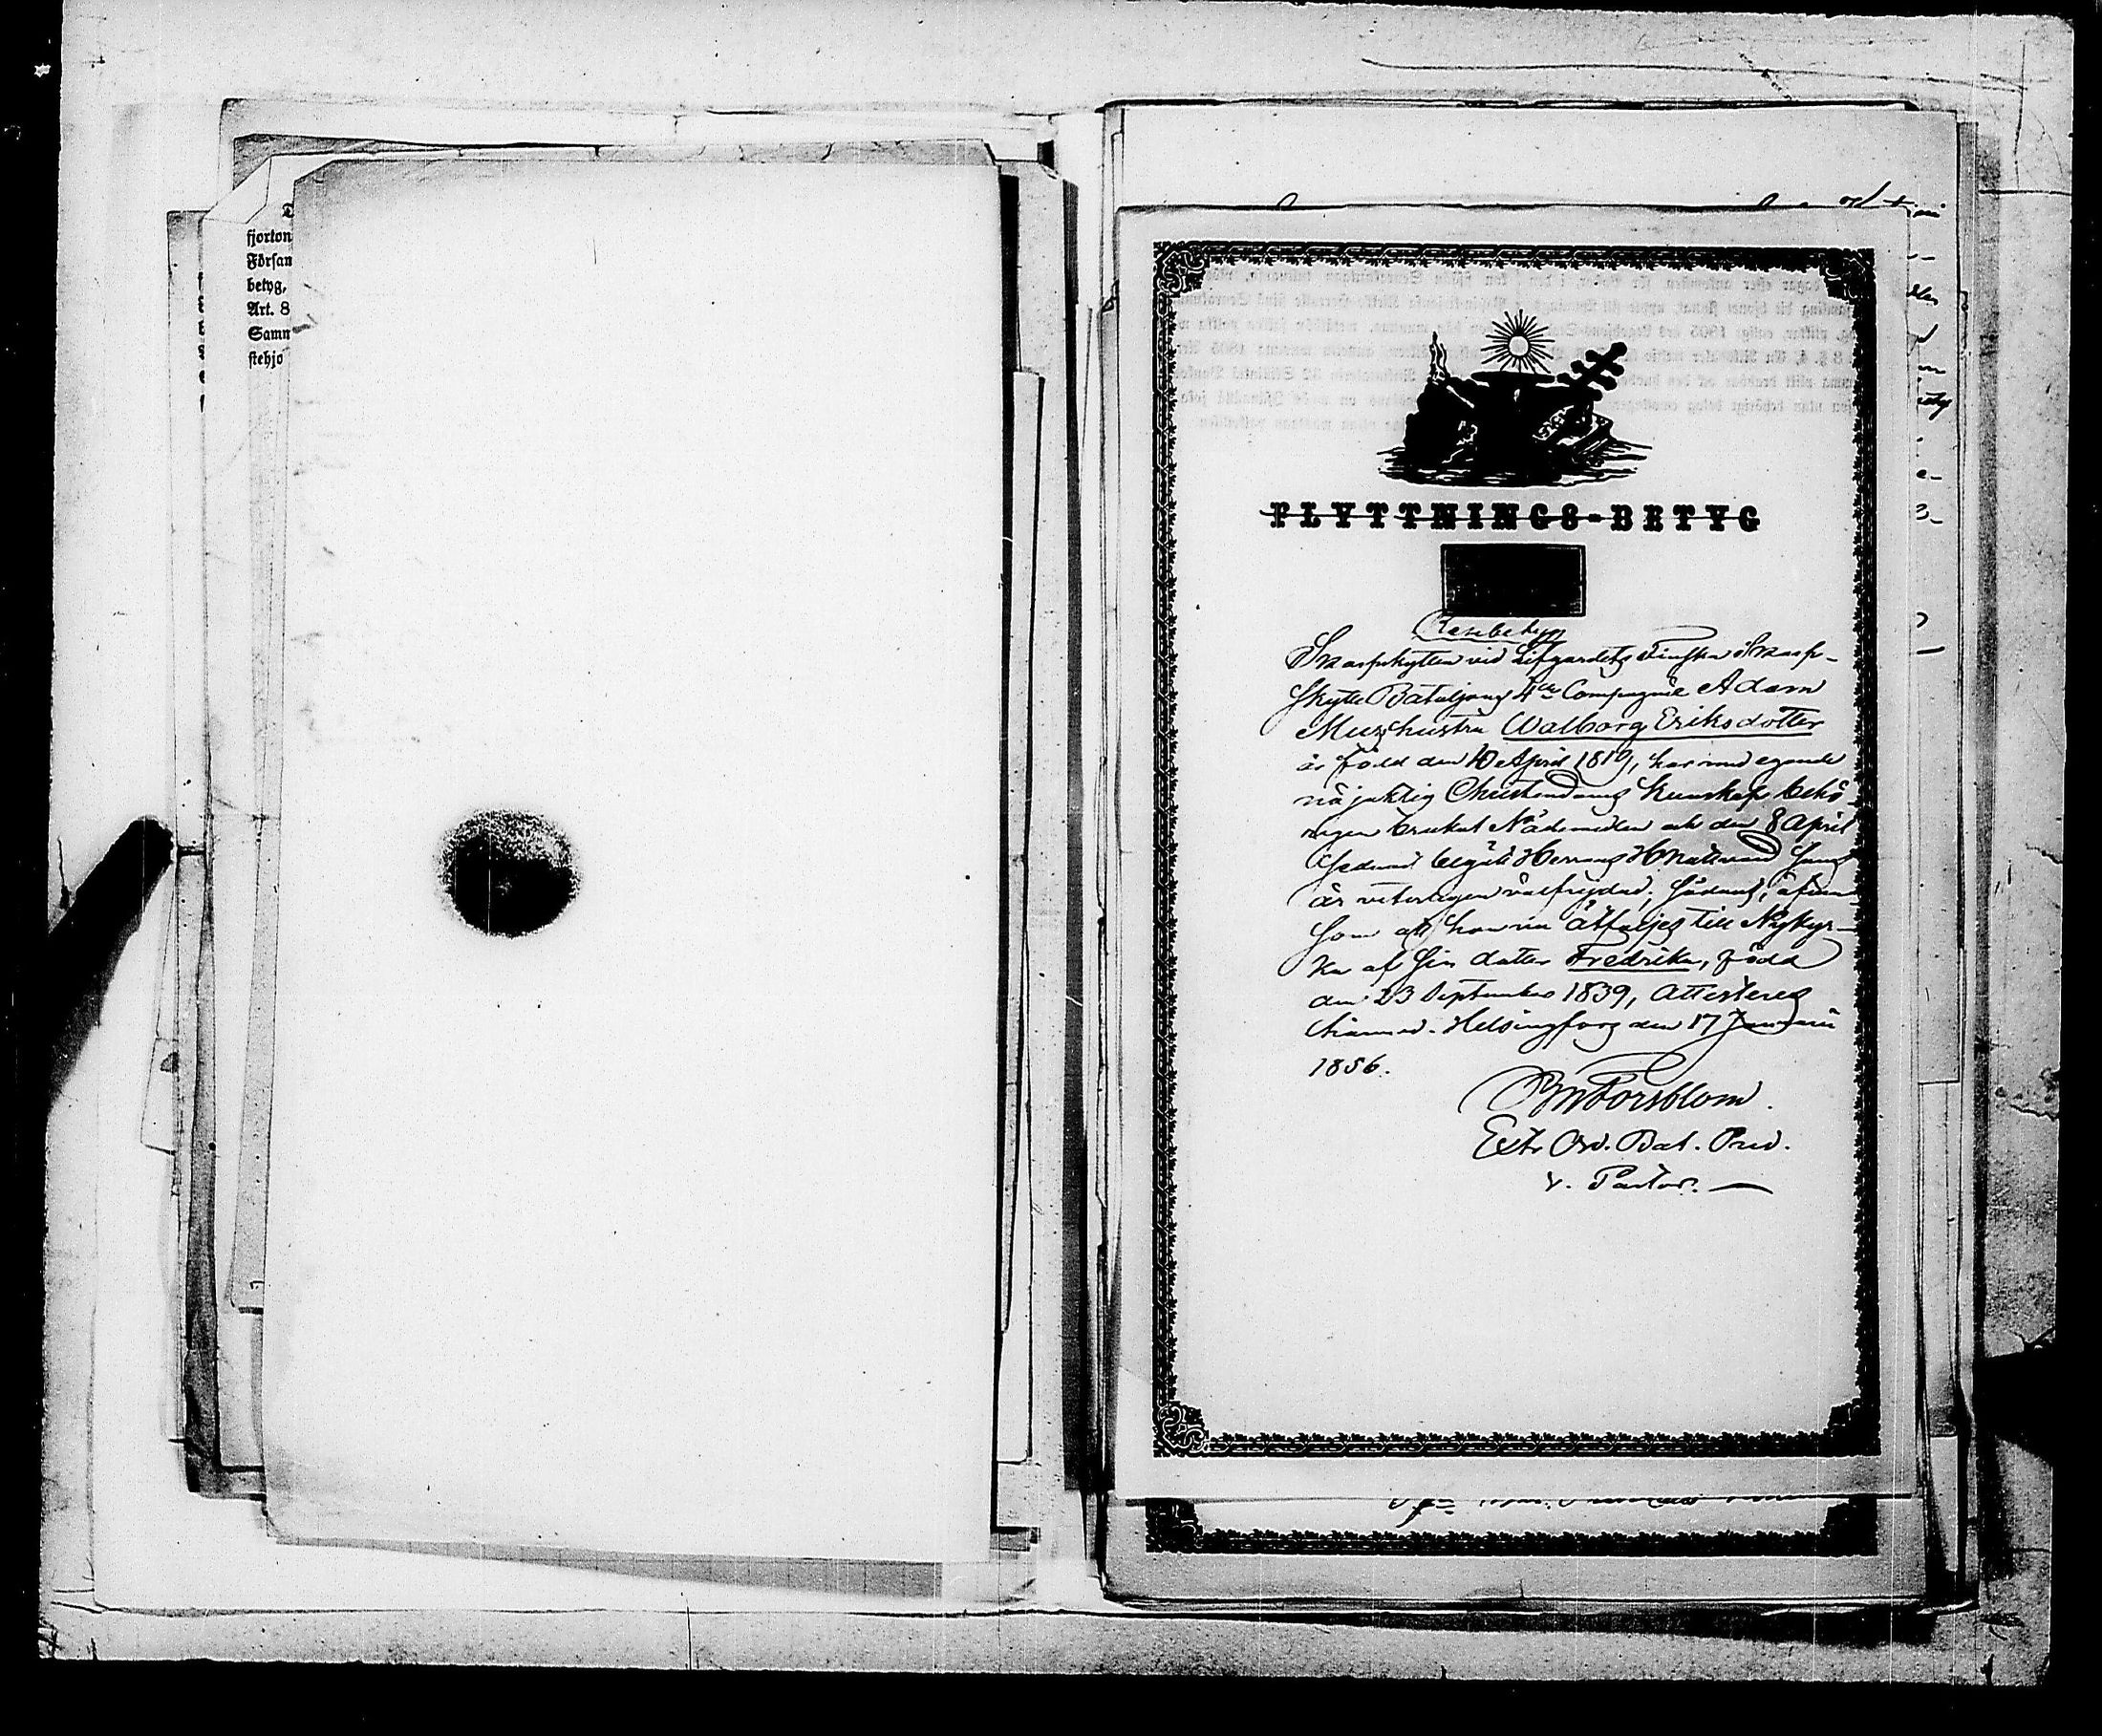 fjorton
Försam
betyg,
Art. 8
Samm
stehjo
FLYTTNINGS-BETYG
Resebetyg
Skarpskytten vid Lifgardets Finska Skarp-
skytte Bataljons 4de Compagnie Adam
hustru Walborg Eriksdotter
är född den 10 April 1819, har med egande
nöjaktig Christendoms kunskap behö-
rigen brukat Nådemedlen och den 8 April
begått Herrans Nattvard samt
är veterligen välfrejdad; sådant, äfven
som att hon nu åtföljes till Nykyr-
ka af sin dotter Fredrika, född
den 23 September 1839, attesteres
härmed. Helsingfors den 17 Januarii
1856.
Forsblom.
Extr Ord. Bat. Pred.
v. Pastor.